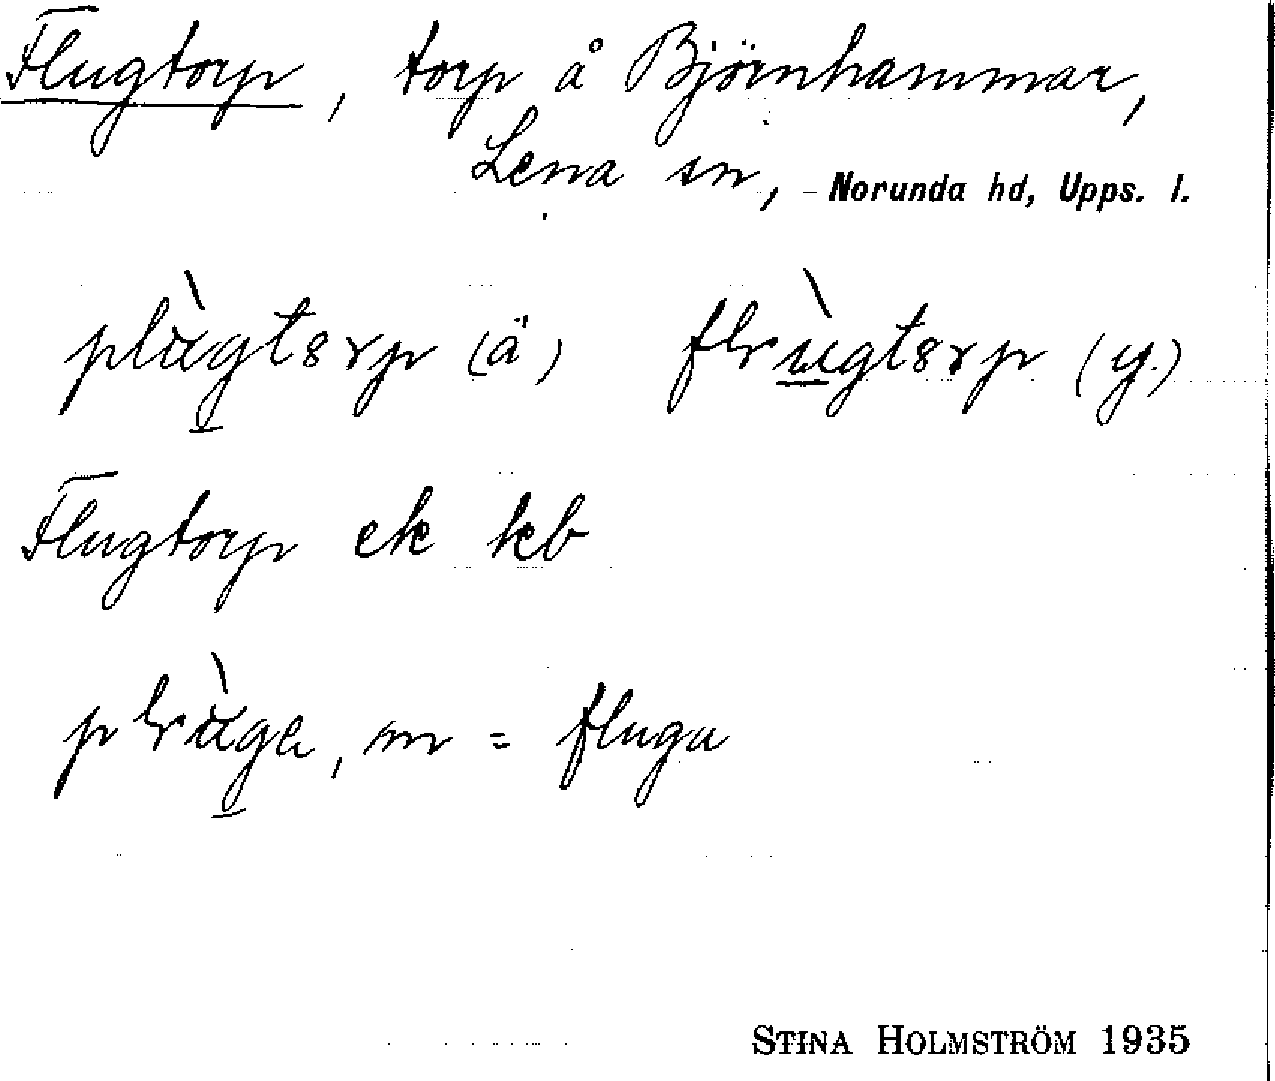 Flugtorp, torp å Björnhammar,
Lena sn, Norunda hd, Upps. l.
plùgtorp (ä) flùgtorp (y.)
Flugtorp ek kb
plùga, m = fluga
STINA HOLMSTRÖM 1935